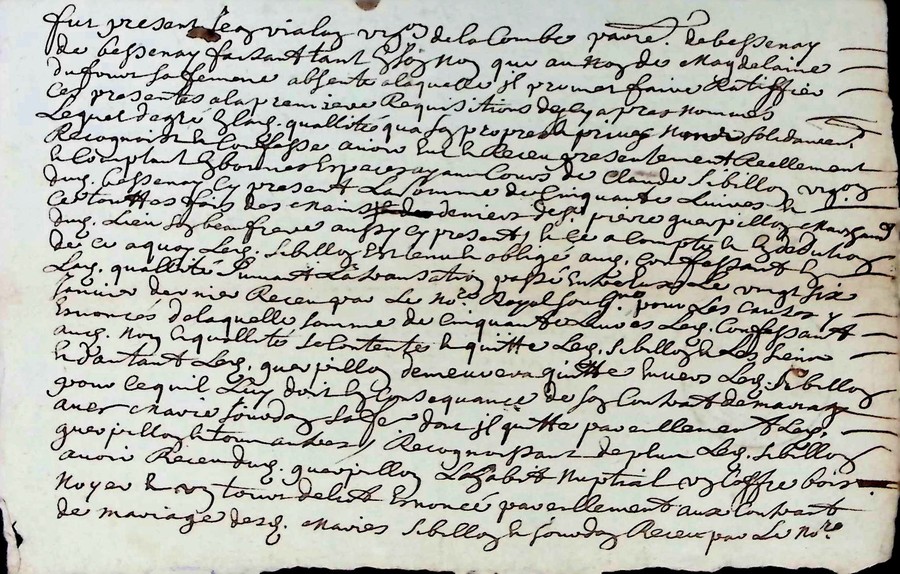 fut present Leoz vialoz vigoz de la Combe parre. de bessenay
de bessenay faisant tant En soz Noz que au Noz de Magdelaine
dufour sa femme absente a laquelle jl promet faire Ratiffier
Ces presentes a la premiere Requisitions des Cy apres Nommes
Lequel de gre En lad. quallité qua soz propre & privez Nom solidairemt.
Recognoist & Confesse avoir Eut & Receu presentement Reellement
& Comptant En bonnes Especes ayant Cours de Claude Sibilloz vigoz
dud. bessenay Cy present La somme de Cinquante Livres &
Ce touttes fois des mains deniers de sr. pierre guerpilloz Marchand
dud. Lieu soz beaufrere aussy Cy present, & Ce a Compte & En deduction
de Ce a quoy Led. Sibilloz Est tenu & oblige aud. Confessant En
Lad. quallité suivant La transaction passé Entre Eux Le vingt six
Janvier dernier Receu par Le Nore. Royal soub.gne pour Les Causes y
Enoncés de laquelle somme de Cinquante Livres Led. Confessant
aud. Noz & quallité se Contente & quitte Led. Sibilloz & Les siens
& d'autant Led. guerpilloz demeurera quitte Envers Led. Sibilloz
pour Ce quil Luy doit En Consequance de soz Contrat de mariage
avec Marie Jourdaz sa fe. dont jl quitte pareillement Led.
guerpilloz & tous autres, Recognoissant de plus Led. Sibilloz
avoir Receu dud. guerpilloz L'habit Nuptial vz Coffre bois
Noyer & vz tour de lict Enoncé pareillement aux Contract
de mariage desd. Maries Sibilloz & Jourdaz Receu par Le Nore.